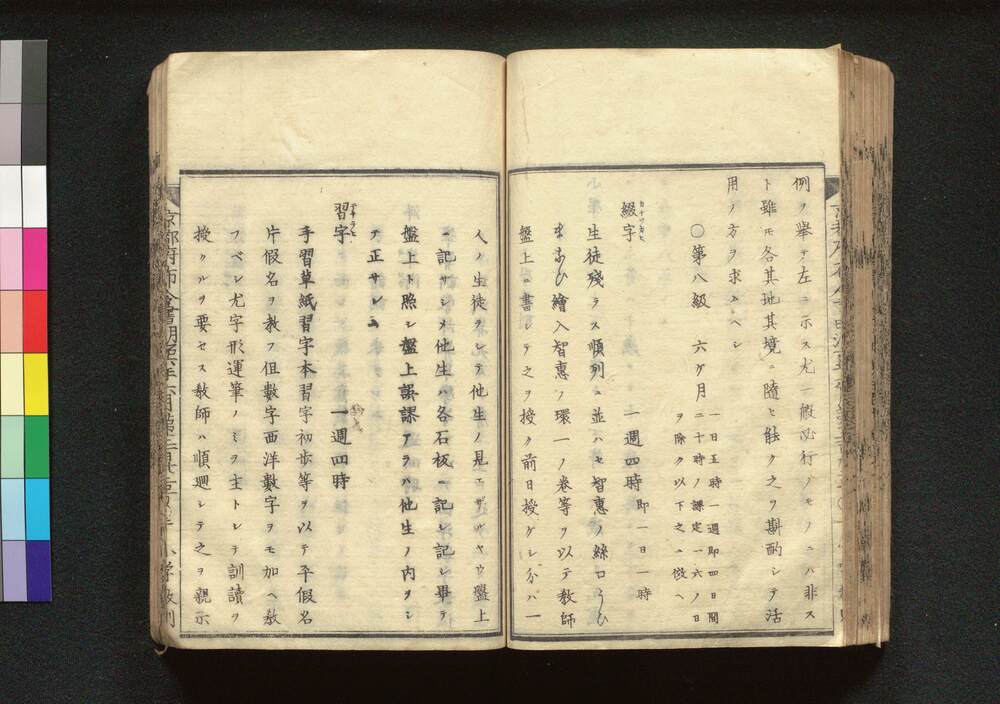 例ヲ擧テ左ニ示ス尤一般必行ノモノニハ非ス
ト雖モ各其地其境ニ隨ヒ能ク之ヲ斟酌シテ活
用ノ方ヲ求ムヘシ
〇第八級 六ヶ月
一日五時一週即四日間
二十時ノ課定一六ノ日
ヲ除ク以下之ニ倣ヘ
綴字 一週四時 即一日一時
生徒殘ラス順列ニ並ハセ智惠ノ絲口うひ
まなび繪入智惠ノ環一ノ巻等ヲ以テ教師
盤上ニ書シテ之ヲ授ク前日授ケシ分ハ一
人ノ生徒ヲシテ他生ノ見エザルヤウ盤上
ニ記サシメ他生ハ各石板ニ記シ記シ畢テ
盤上ト照シ盤上誤謬アラハ他生ノ内ヲシ
テ正サシム
習字 テナラヒ 一週四時
手習草紙習字本習字初歩等ヲ以テ平假名
片假名ヲ教フ但數字西洋數字ヲモ加ヘ教
フベシ尤字形運筆ノミヲ主トシテ訓讀ヲ
授クルヲ要セス教師ハ順廻シテ之ヲ親示